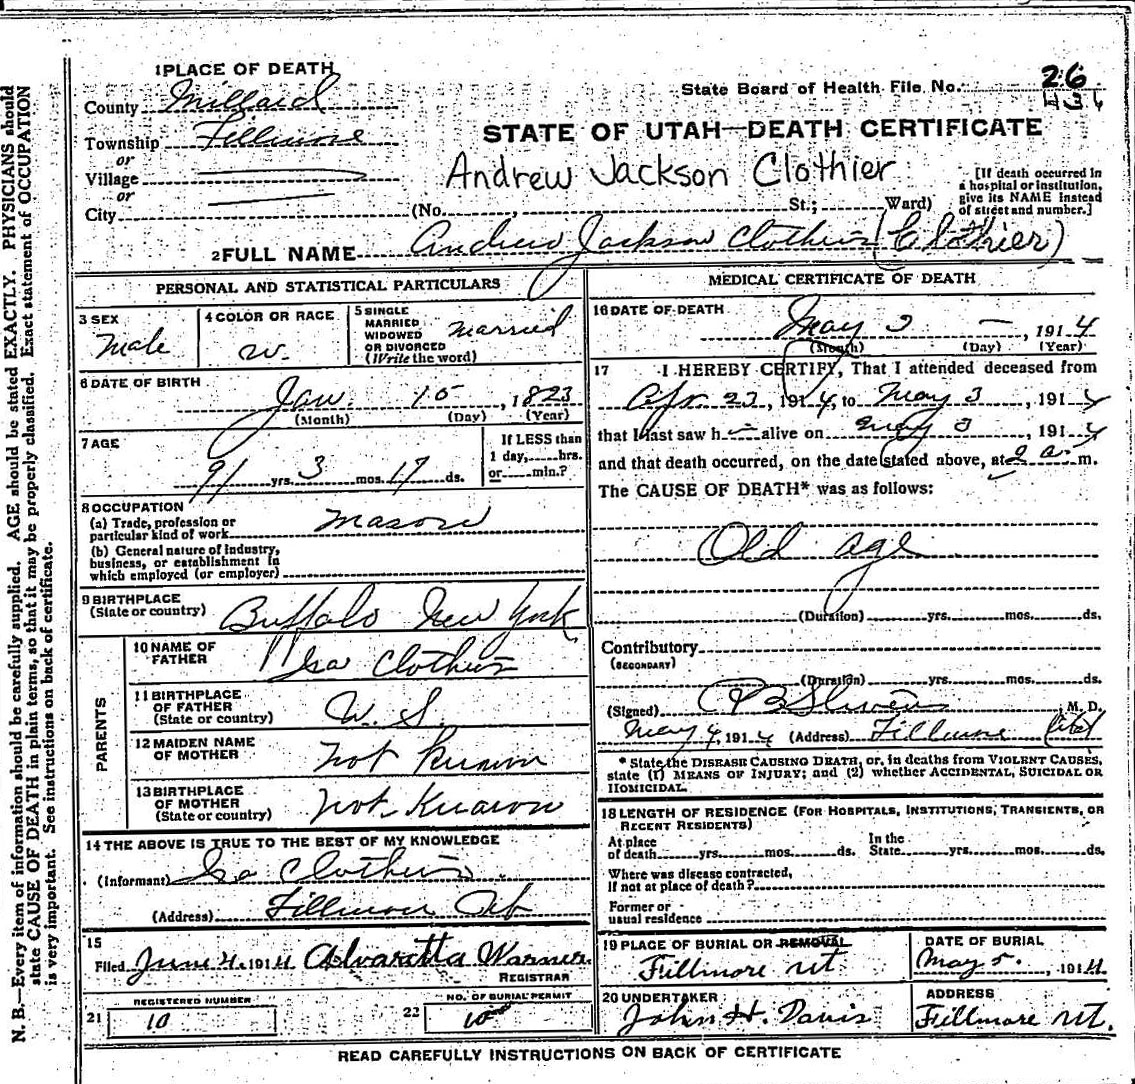 1 PLACE OF DEATH
County Millard
Township Fillmore
or
Village
or
City
State Board of Health File No. 26
436
STATE OF UTAH—DEATH CERTIFICATE
Andrew Jackson Clothier
(No. St.; Ward)
[If death occurred in
a hospital or institution,
give its NAME instead
of street and number.]
2 FULL NAME Andrew Jackson Clothier (Clothier)
PERSONAL AND STATISTICAL PARTICULARS
3 SEX
Male
4 COLOR OR RACE
W.
5 SINGLE
MARRIED
WIDOWED
OR DIVORCED
(Write the word)
Married
6 DATE OF BIRTH
Jan. 15, 1823
(Month) (Day) (Year)
7 AGE
91 yrs. 3 mos. 17 ds.
If LESS than
1 day, hrs.
or min.?
8 OCCUPATION
(a) Trade, profession or
particular kind of work Mason
(b) General nature of industry,
business, or establishment in
which employed (or employer)
9 BIRTHPLACE
(State or country) Buffalo New York
PARENTS
10 NAME OF
FATHER Isa Clothier
11 BIRTHPLACE
OF FATHER
(State or country) U. S.
12 MAIDEN NAME
OF MOTHER Not Known
13 BIRTHPLACE
OF MOTHER
(State or country) Not Known
14 THE ABOVE IS TRUE TO THE BEST OF MY KNOWLEDGE
(Informant) Isa Clothier
(Address) Fillmore Ut
15
Filed June 4, 1914 Alvaretta Warner
REGISTRAR
REGISTERED NUMBER
21 10
NO. OF BURIAL PERMIT
22 10
MEDICAL CERTIFICATE OF DEATH
16 DATE OF DEATH
May 3, 1914
(Month) (Day) (Year)
17 I HEREBY CERTIFY, That I attended deceased from
Apr 23, 1914, to May 3, 1914
that I last saw h alive on May 3, 1914
and that death occurred, on the date stated above, at 2 a. m.
The CAUSE OF DEATH* was as follows:
Old age
(Duration) yrs. mos. ds.
Contributory
(SECONDARY)
(Duration) yrs. mos. ds.
(Signed) M. D.
May 4, 1914 (Address) Fillmore
* State the DISEASE CAUSING DEATH, or, in deaths from VIOLENT CAUSES,
state (1) MEANS OF INJURY; and (2) whether ACCIDENTAL, SUICIDAL OR
HOMICIDAL.
18 LENGTH OF RESIDENCE (FOR HOSPITALS, INSTITUTIONS, TRANSIENTS, OR
RECENT RESIDENTS)
At place
of death yrs. mos. ds.
In the
State yrs. mos. ds.
Where was disease contracted,
if not at place of death?
Former or
usual residence
19 PLACE OF BURIAL OR REMOVAL
Fillmore Ut.
DATE OF BURIAL
May 5, 1914
20 UNDERTAKER
John H. Davis
ADDRESS
Fillmore Ut.
READ CAREFULLY INSTRUCTIONS ON BACK OF CERTIFICATE
N. B.—Every item of information should be carefully supplied. AGE should be stated EXACTLY. PHYSICIANS should
state CAUSE OF DEATH in plain terms, so that it may be properly classified. Exact statement of OCCUPATION
is very important. See instructions on back of certificate.